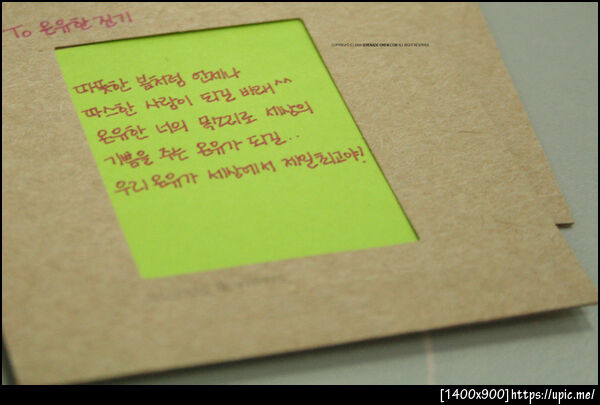 To 온유한 진기
COPYRIGHT (C) 2008 SERENADE-ONEW.COM ALL RIGHT RESERVED.
따뜻한 봄처럼 언제나
따스한 사람이 되길 바래^^
온유한 너의 목소리로 세상의
기쁨을 주는 온유가 되길..
우리 온유가 세상에서 제일최고야!
[1400x900]https://upic.me/